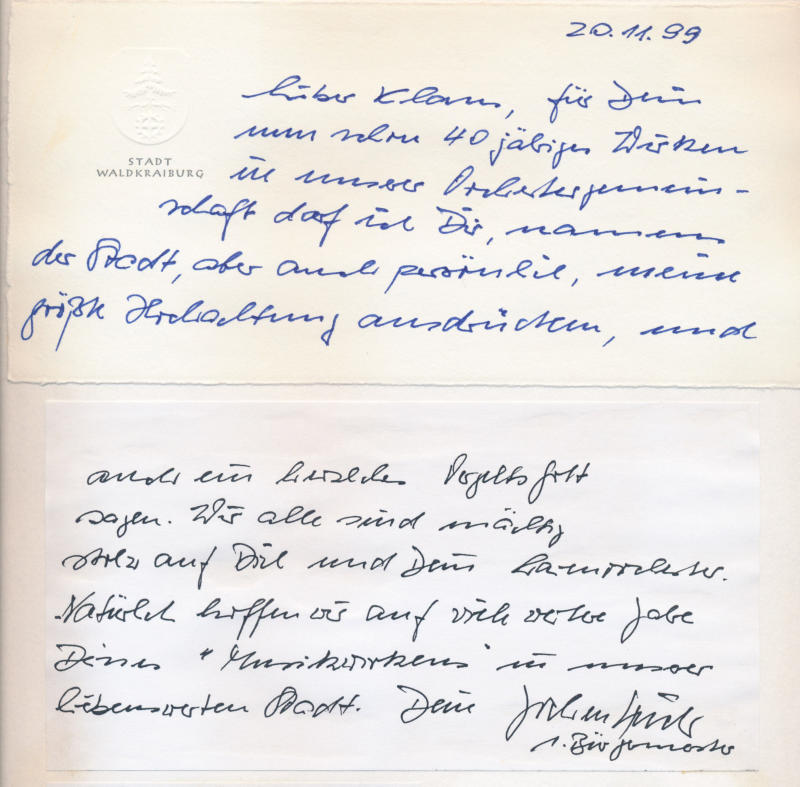 20.11.99
STADT
WALDKRAIBURG
Lieber Klaus, für Dein
nun schon 40 jähriges Wirken
in unserer Orchestergemein-
schaft darf ich Dir, namens
der Stadt, aber auch persönlich, meine
größte Hochachtung ausdrücken, und
auch ein herzliches Vergelts Gott
sagen. Wir alle sind mächtig
stolz auf Dich und Dein Kammerorchester.
Natürlich hoffen wir auf viele weitere Jahre
Deines "Musikwirkens" in unserer
liebenswerten Stadt. Dein Jochen
1. Bürgermeister